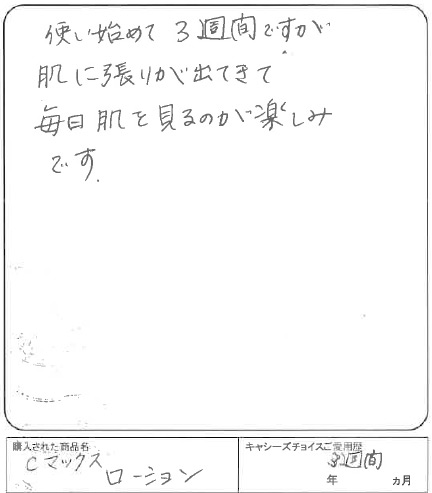 使い始めて3週間ですが
肌に張りが出てきて
毎日肌を見るのが楽しみ
です.
購入された商品名
Cマックス
ローション
キャシーズチョイスご愛用歴
3週間
年 ヵ月